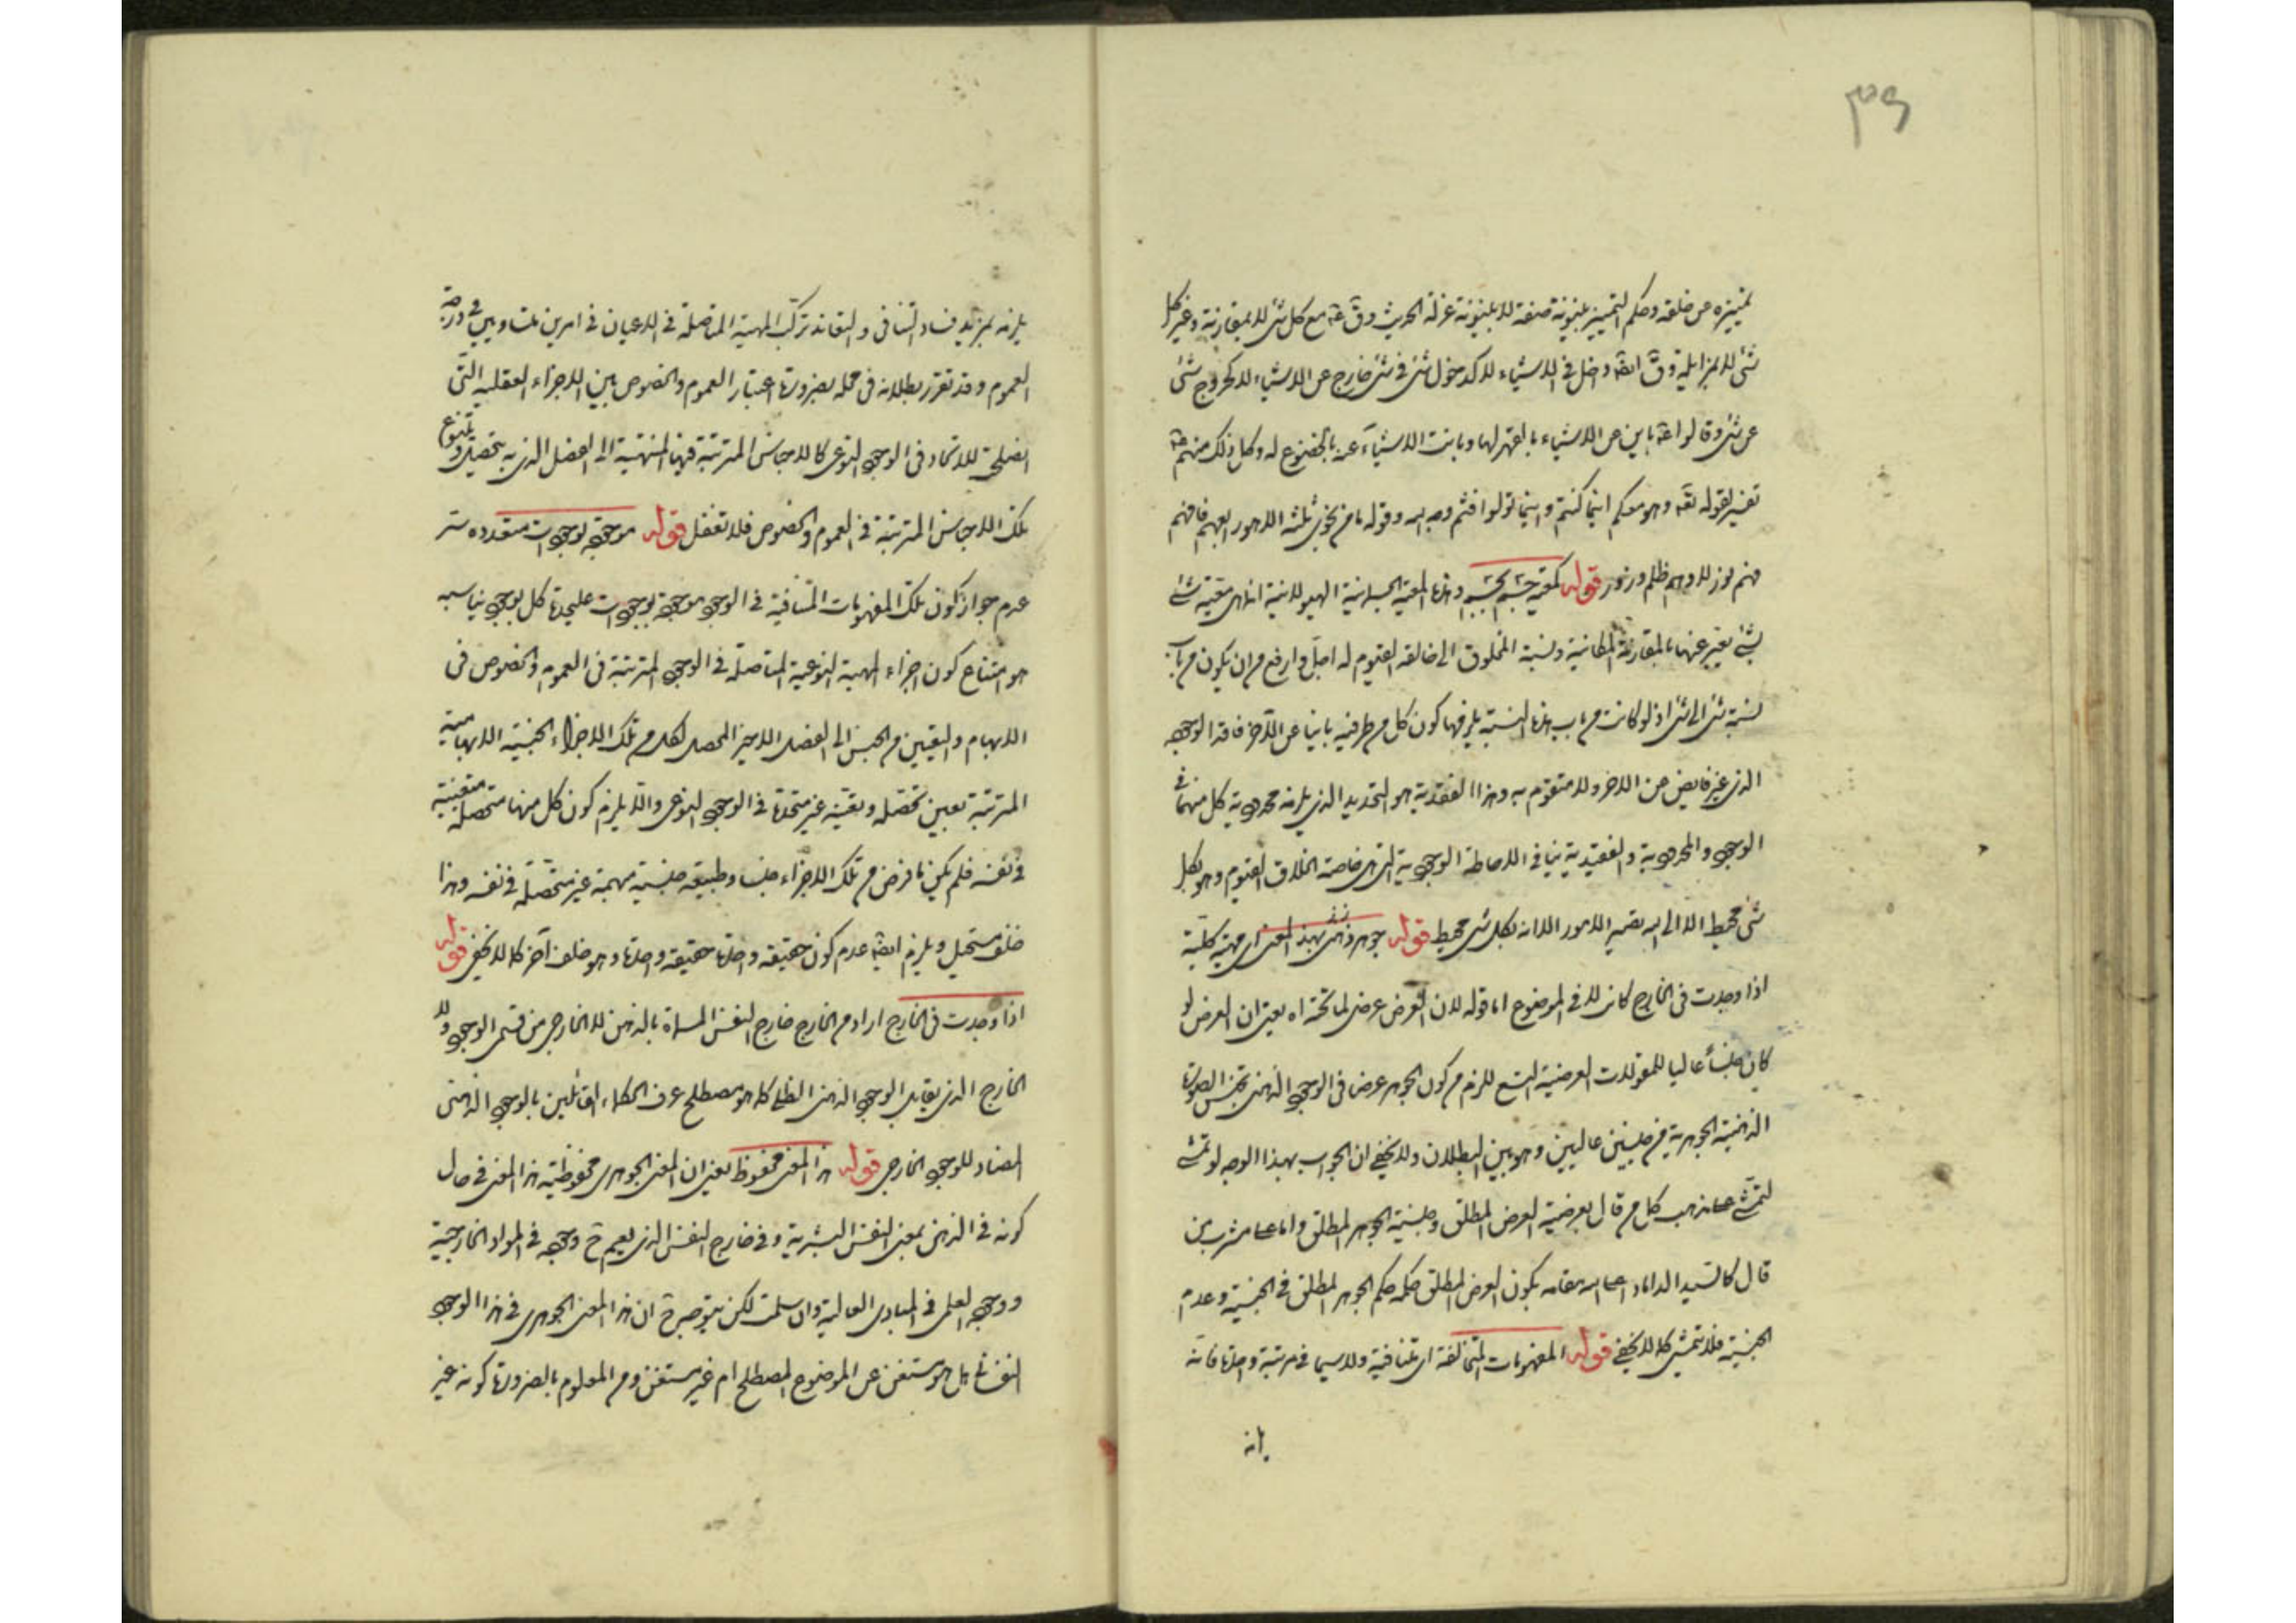 ۳۹
تمييزه عن خلقه وحكم التمييز بينونة صفة لا بينونة عزلة الحديث وق ع مع كل شئ لا بمقارنة وغير كل
شئ لا بمزايلة وق ايضا داخل فى الاشياء لا كدخول شئ فى شئ خارج عن الاشياء لا كخروج شئ
عن شئ وقالوا ع باين من الاشياء بالقهر لها وبانت الاشياء عنه بالخضوع له وكل ذلك منهم ع
تفسير لقوله تعه وهو معكم اينما كنتم و اينما تولوا فثم وجه الله وقوله ما من نجوى ثلثه الا هو رابعهم فافهم
فهم نور لا وهم ظلم وزور قوله كمعية جسم لجسم وهذه المعية الجسمانية الهيولانية انما هى معية شئ
بشئ يعبر عنها بالمقارنة المكانية ونسبة المخلوق الى خالقه القيوم له اجل وارفع من ان يكون من باب
نسبة شئ الى شئ اذ لو كانت من باب هذه النسبة يلزمها كون كل من طرفيه باينا عن الآخر فاقد الوجود
الذى غير فايض من الاخر ولا متقوم به وهذا الفقدية هو التحديد الذى يلزمه محدودية كل منهما فى
الوجود والمحدودية والفقيدية ينافى الاحاطة الوجودية التى هى خاصة الخلاق القيوم وهو بكل
شئ محيط الا الى الله تصير الامور الا انه بكل شئ محيط قوله جوهر ذهنى بهذا المعنى اى مهية كلية
اذا وجدت فى الخارج كانت لا فى الموضوع اما قوله لان العرض عرضى لما تحته اه يعنى ان العرض لو
كان جنسا عاليا للمقولات العرضية التسع للزم من كون الجوهر عرضا فى الوجود الذهنى تجنس الصورة
الذهنية الجوهرية من جنسين عاليين وهو بين البطلان ولا يخفى ان الجواب بهذا الوجه لو تمشى
لتمشى على مذهب كل من قال بعرضية العرض المطلق وجنسية الجوهر المطلق واما على مشرب من
قال كالسيد الداماد اعلى الله مقامه بكون العرض المطلق حكمه حكم الجوهر المطلق فى الجنسية وعدم
الجنسية فلا يتمشى كما لا يخفى قوله المفهومات المتخالفة اى المتنافية ولا سيما فى مرتبة واحدة فانه
يلزمه بمزيد فساد التنافى والتعاند تركب المهية المتاصلة فى الاعيان فى امرين متساويين فى درجة
العموم وقد تقرر بطلانه فى محله بضرورة اعتبار العموم والخصوص بين الاجزاء العقلية التى
تصلح للاتحاد فى الوجود النوعى كالاجناس المترتبة فيها المنتهية الى الفصل الذى به يتحصل ويتنوع
تلك الاجناس المترتبة فى العموم والخصوص فلا تغفل قوله موجودة بوجودات متعددة ستر
عدم جواز كون تلك المفهومات المتنافية فى الوجود موجودة بوجودات عليحدة كل بوجود يناسبه
هو امتناع كون اجزاء المهية النوعية المتاصلة فى الوجود المترتبة فى العموم والخصوص فى
الابهام والتعين من الجنس الى الفصل الاخير المحصل لكل من تلك الاجزاء الجنسية الابهامية
المترتبة بعين تحصله وتعينه غير متحدة فى الوجود النوعى والا يلزم كون كل منها متحصلة متعينة
فى نفسه فلم يكن ما فرض من تلك الاجزاء جنسا وطبيعة جنسية مبهمة غير متحصلة فى نفسه وهذا
خلف مستحيل ويلزم ايضا عدم كون حقيقة واحدة حقيقة واحدة وهو خلف آخر كما لا يخفى قوله
اذا وجدت فى الخارج اراد من الخارج خارج النفس المسماة بالذهن لا الخارجى من قسمى الوجود ولا
الخارج الذى يقابل الوجود الذهنى الظلى كما هو مصطلح عرف الحكماء القائلين بالوجود الذهنى
المضاد للوجود الخارجى قوله هذا المعنى محفوظ يعنى ان المعنى الجوهرى محفوظية هذا المعنى فى حال
كونه فى الذهن بمعنى النفس البشرية وفى خارج النفس الذى يعم ح وجوده فى المواد الخارجية
ووجوده العلمى فى المبادى العالية وان سلمت لكن يتوجه ح ان هذا المعنى الجوهرى فى هذا الوجود
النفسانى هل هو مستغن عن الموضوع المصطلح ام غير مستغن ومن المعلوم بالضرورة كونه غير